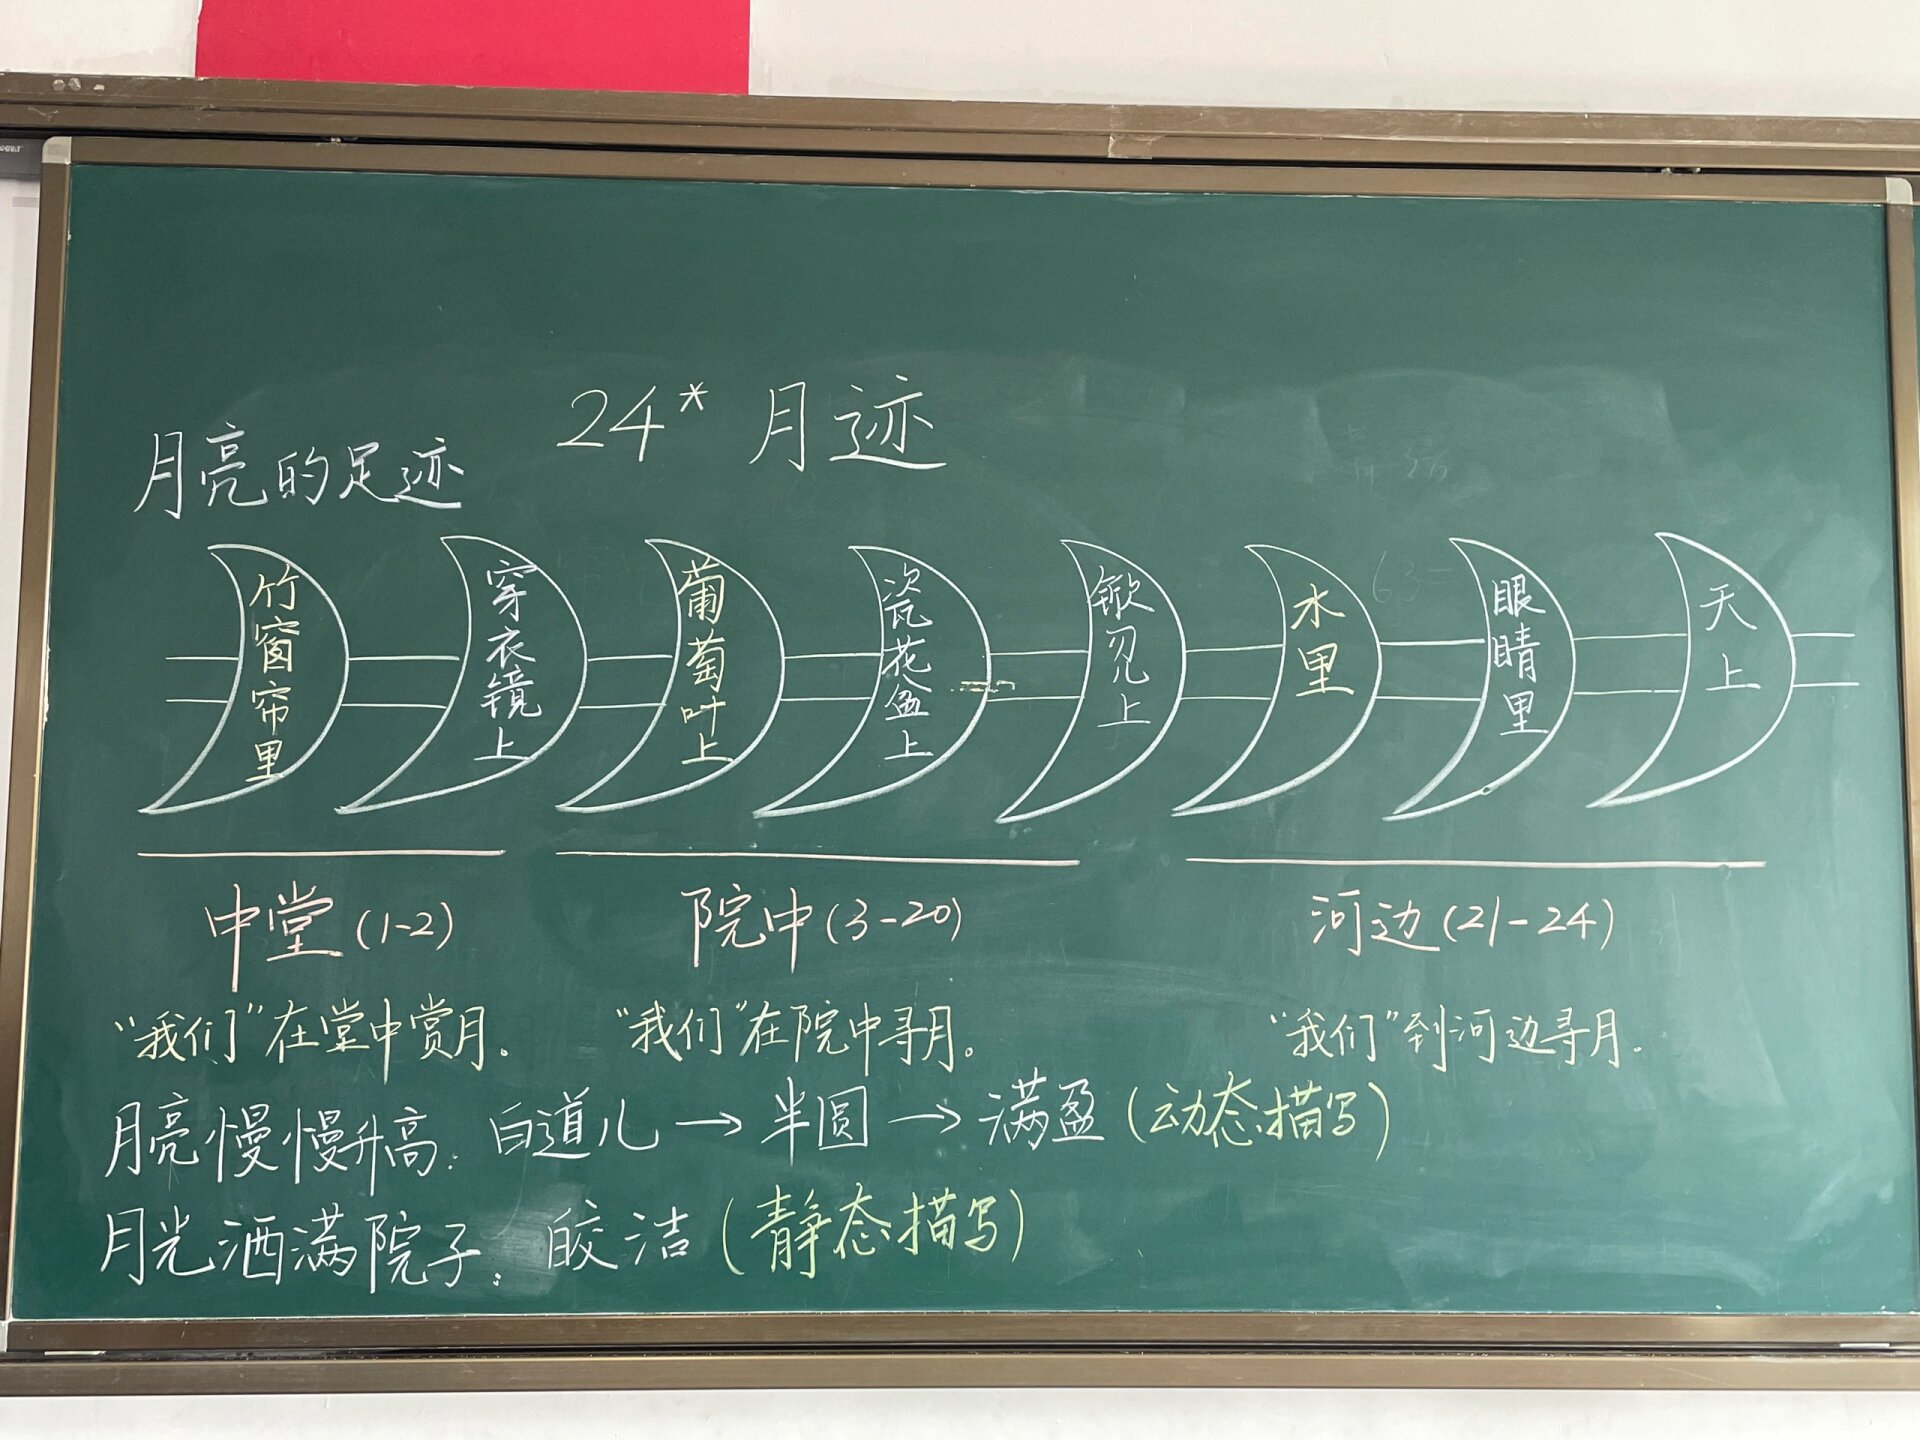 24* 月迹
月亮的足迹
竹窗帘里
穿衣镜上
葡萄叶上
瓷花盆上
锨刃上
水里
眼睛里
天上
中堂(1-2)
院中(3-20)
河边(21-24)
“我们”在堂中赏月。
“我们”在院中寻月。
“我们”到河边寻月.
月亮慢慢升高: 白道儿→半圆→满盈(动态描写)
月光洒满院子: 皎洁(静态描写)